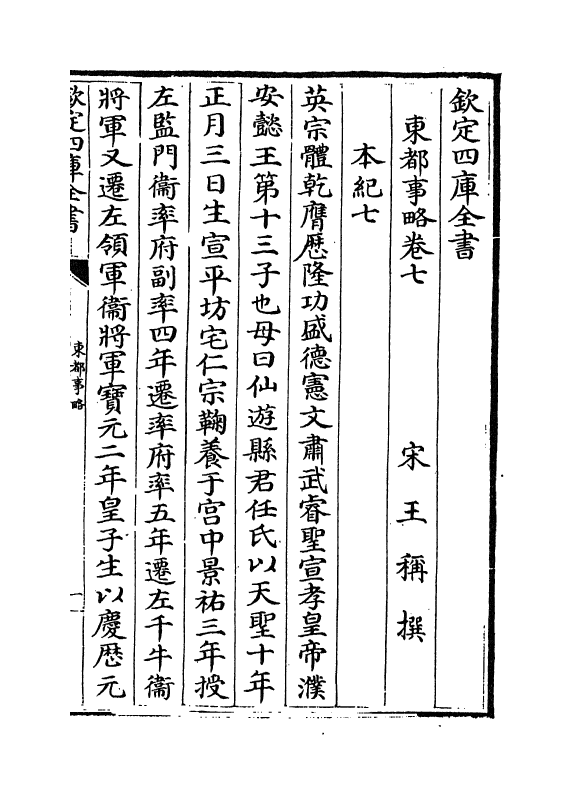 欽定四庫全書
東都事略卷七
宋王稱撰
本紀七
英宗體乾膺歴隆功盛德憲文肅武睿聖宣孝皇帝濮
安懿王第十三子也母曰仙遊縣君任氏以天聖十年
正月三日生宣平坊宅仁宗鞠養于宫中景祐三年授
左監門衞率府副率四年遷率府率五年遷左千牛衞
將軍又遷左領軍衞將軍寶元二年皇子生以慶歴元
欽定四庫全書
東都事略
一